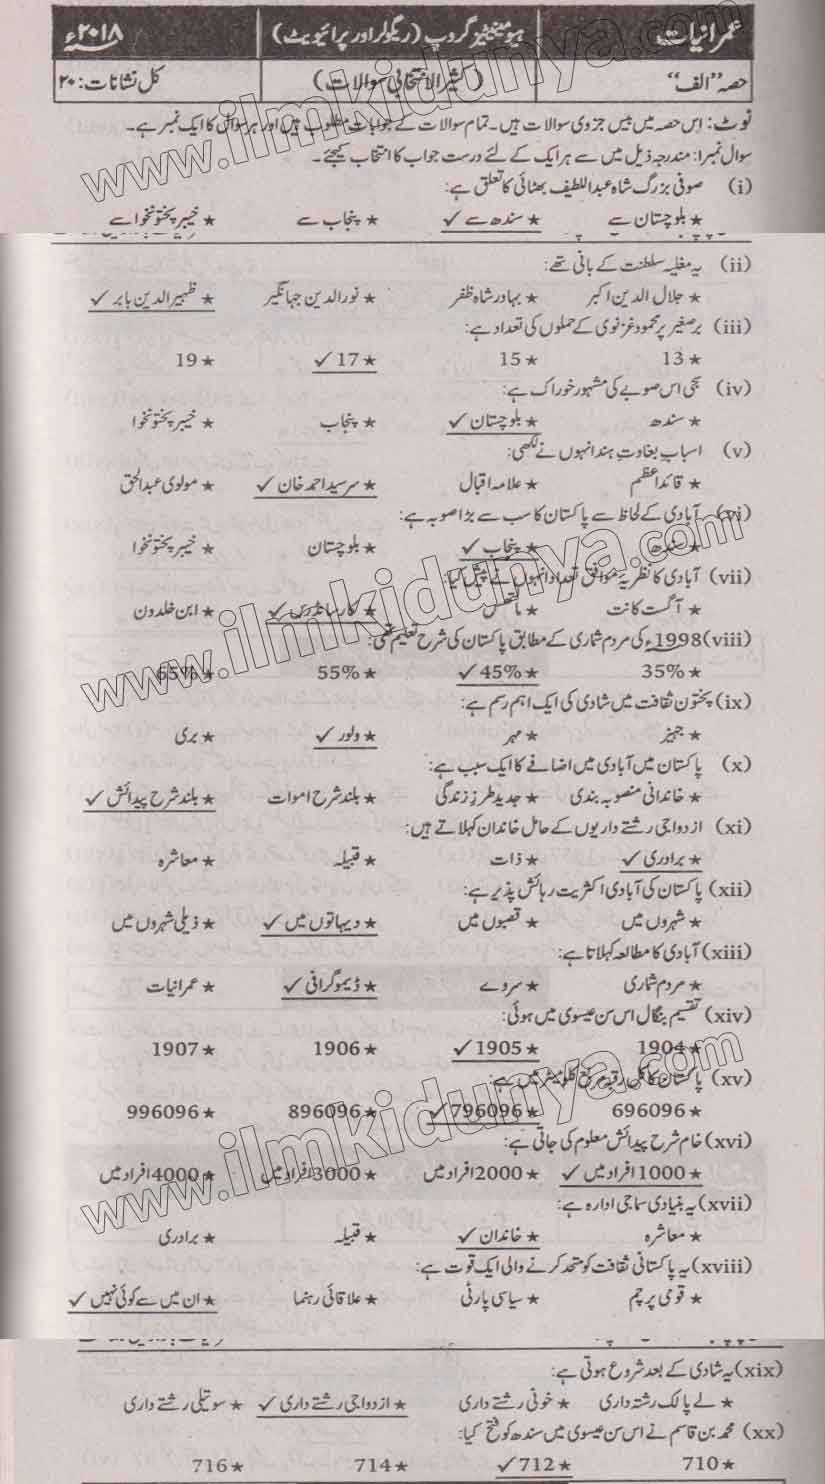 عمرانیات ہیومینیٹیز گروپ (ریگولر اور پرائیویٹ) ۲۰۱۸ء
حصہ "الف" (کثیر الانتخابی سوالات) کل نشانات: ۲۰
نوٹ: اس حصہ میں بیس جزوی سوالات ہیں۔ تمام سوالات کے جوابات مطلوب ہیں اور ہر سوال کا ایک نمبر ہے۔
سوال نمبر ۱: مندرجہ ذیل میں سے ہر ایک کے لئے درست جواب کا انتخاب کیجئے۔
(i) صوفی بزرگ شاہ عبد اللطیف بھٹائی کا تعلق ہے:
★ بلوچستان سے ★ سندھ سے ✓ ★ پنجاب سے ★ خیبر پختونخوا سے
(ii) یہ مغلیہ سلطنت کے بانی تھے:
★ جلال الدین اکبر ★ بہادر شاہ ظفر ★ نور الدین جہانگیر ★ ظہیر الدین بابر ✓
(iii) برصغیر پر محمود غزنوی کے حملوں کی تعداد ہے:
★ 13 ★ 15 ★ 17 ✓ ★ 19
(iv) سجی اس صوبے کی مشہور خوراک ہے:
★ سندھ ★ بلوچستان ✓ ★ پنجاب ★ خیبر پختونخوا
(v) اسباب بغاوت ہند انہوں نے لکھی:
★ قائد اعظم ★ علامہ اقبال ★ سرسید احمد خان ✓ ★ مولوی عبد الحق
(vi) آبادی کے لحاظ سے پاکستان کا سب سے بڑا صوبہ ہے:
★ سندھ ★ پنجاب ✓ ★ بلوچستان ★ خیبر پختونخوا
(vii) آبادی کا نظریۂ موافق تعداد انہوں نے پیش کیا:
★ آگست کانت ★ مالتھس ★ کارسانڈرس ✓ ★ ابن خلدون
(viii) 1998ء کی مردم شماری کے مطابق پاکستان کی شرح تعلیم تھی:
★ 35% ★ 45% ✓ ★ 55% ★ 65%
(ix) پختون ثقافت میں شادی کی ایک اہم رسم ہے:
★ جہیز ★ مہر ★ ولور ✓ ★ بری
(x) پاکستان میں آبادی میں اضافے کا ایک سبب ہے:
★ خاندانی منصوبہ بندی ★ جدید طرز زندگی ★ بلند شرح اموات ★ بلند شرح پیدائش ✓
(xi) ازدواجی رشتے داریوں کے حامل خاندان کہلاتے ہیں:
★ برادری ✓ ★ ذات ★ قبیلہ ★ معاشرہ
(xii) پاکستان کی آبادی اکثریت رہائش پذیر ہے:
★ شہروں میں ★ قصبوں میں ★ دیہاتوں میں ✓ ★ ذیلی شہروں میں
(xiii) آبادی کا مطالعہ کہلاتا ہے:
★ مردم شماری ★ سروے ★ ڈیموگرافی ✓ ★ عمرانیات
(xiv) تقسیم بنگال اس سن عیسوی میں ہوئی:
★ 1904 ★ 1905 ✓ ★ 1906 ★ 1907
(xv) پاکستان کا کل رقبہ مربع کلومیٹر میں ہے:
★ 696096 ★ 796096 ✓ ★ 896096 ★ 996096
(xvi) خام شرح پیدائش معلوم کی جاتی ہے:
★ 1000 افراد میں ✓ ★ 2000 افراد میں ★ 3000 افراد میں ★ 4000 افراد میں
(xvii) یہ بنیادی سماجی ادارہ ہے:
★ معاشرہ ★ خاندان ✓ ★ قبیلہ ★ برادری
(xviii) یہ پاکستانی ثقافت کو متحد کرنے والی ایک قوت ہے:
★ قومی پرچم ★ سیاسی پارٹی ★ علاقائی رہنما ★ ان میں سے کوئی نہیں ✓
(xix) یہ شادی کے بعد شروع ہوتی ہے:
★ لے پالک رشتہ داری ★ خونی رشتے داری ★ ازدواجی رشتے داری ✓ ★ سوتیلی رشتے داری
(xx) محمد بن قاسم نے اس سن عیسوی میں سندھ کو فتح کیا:
★ 710 ★ 712 ✓ ★ 714 ★ 716
www.ilmkidunya.com
www.ilmkidunya.com
www.ilmkidunya.com